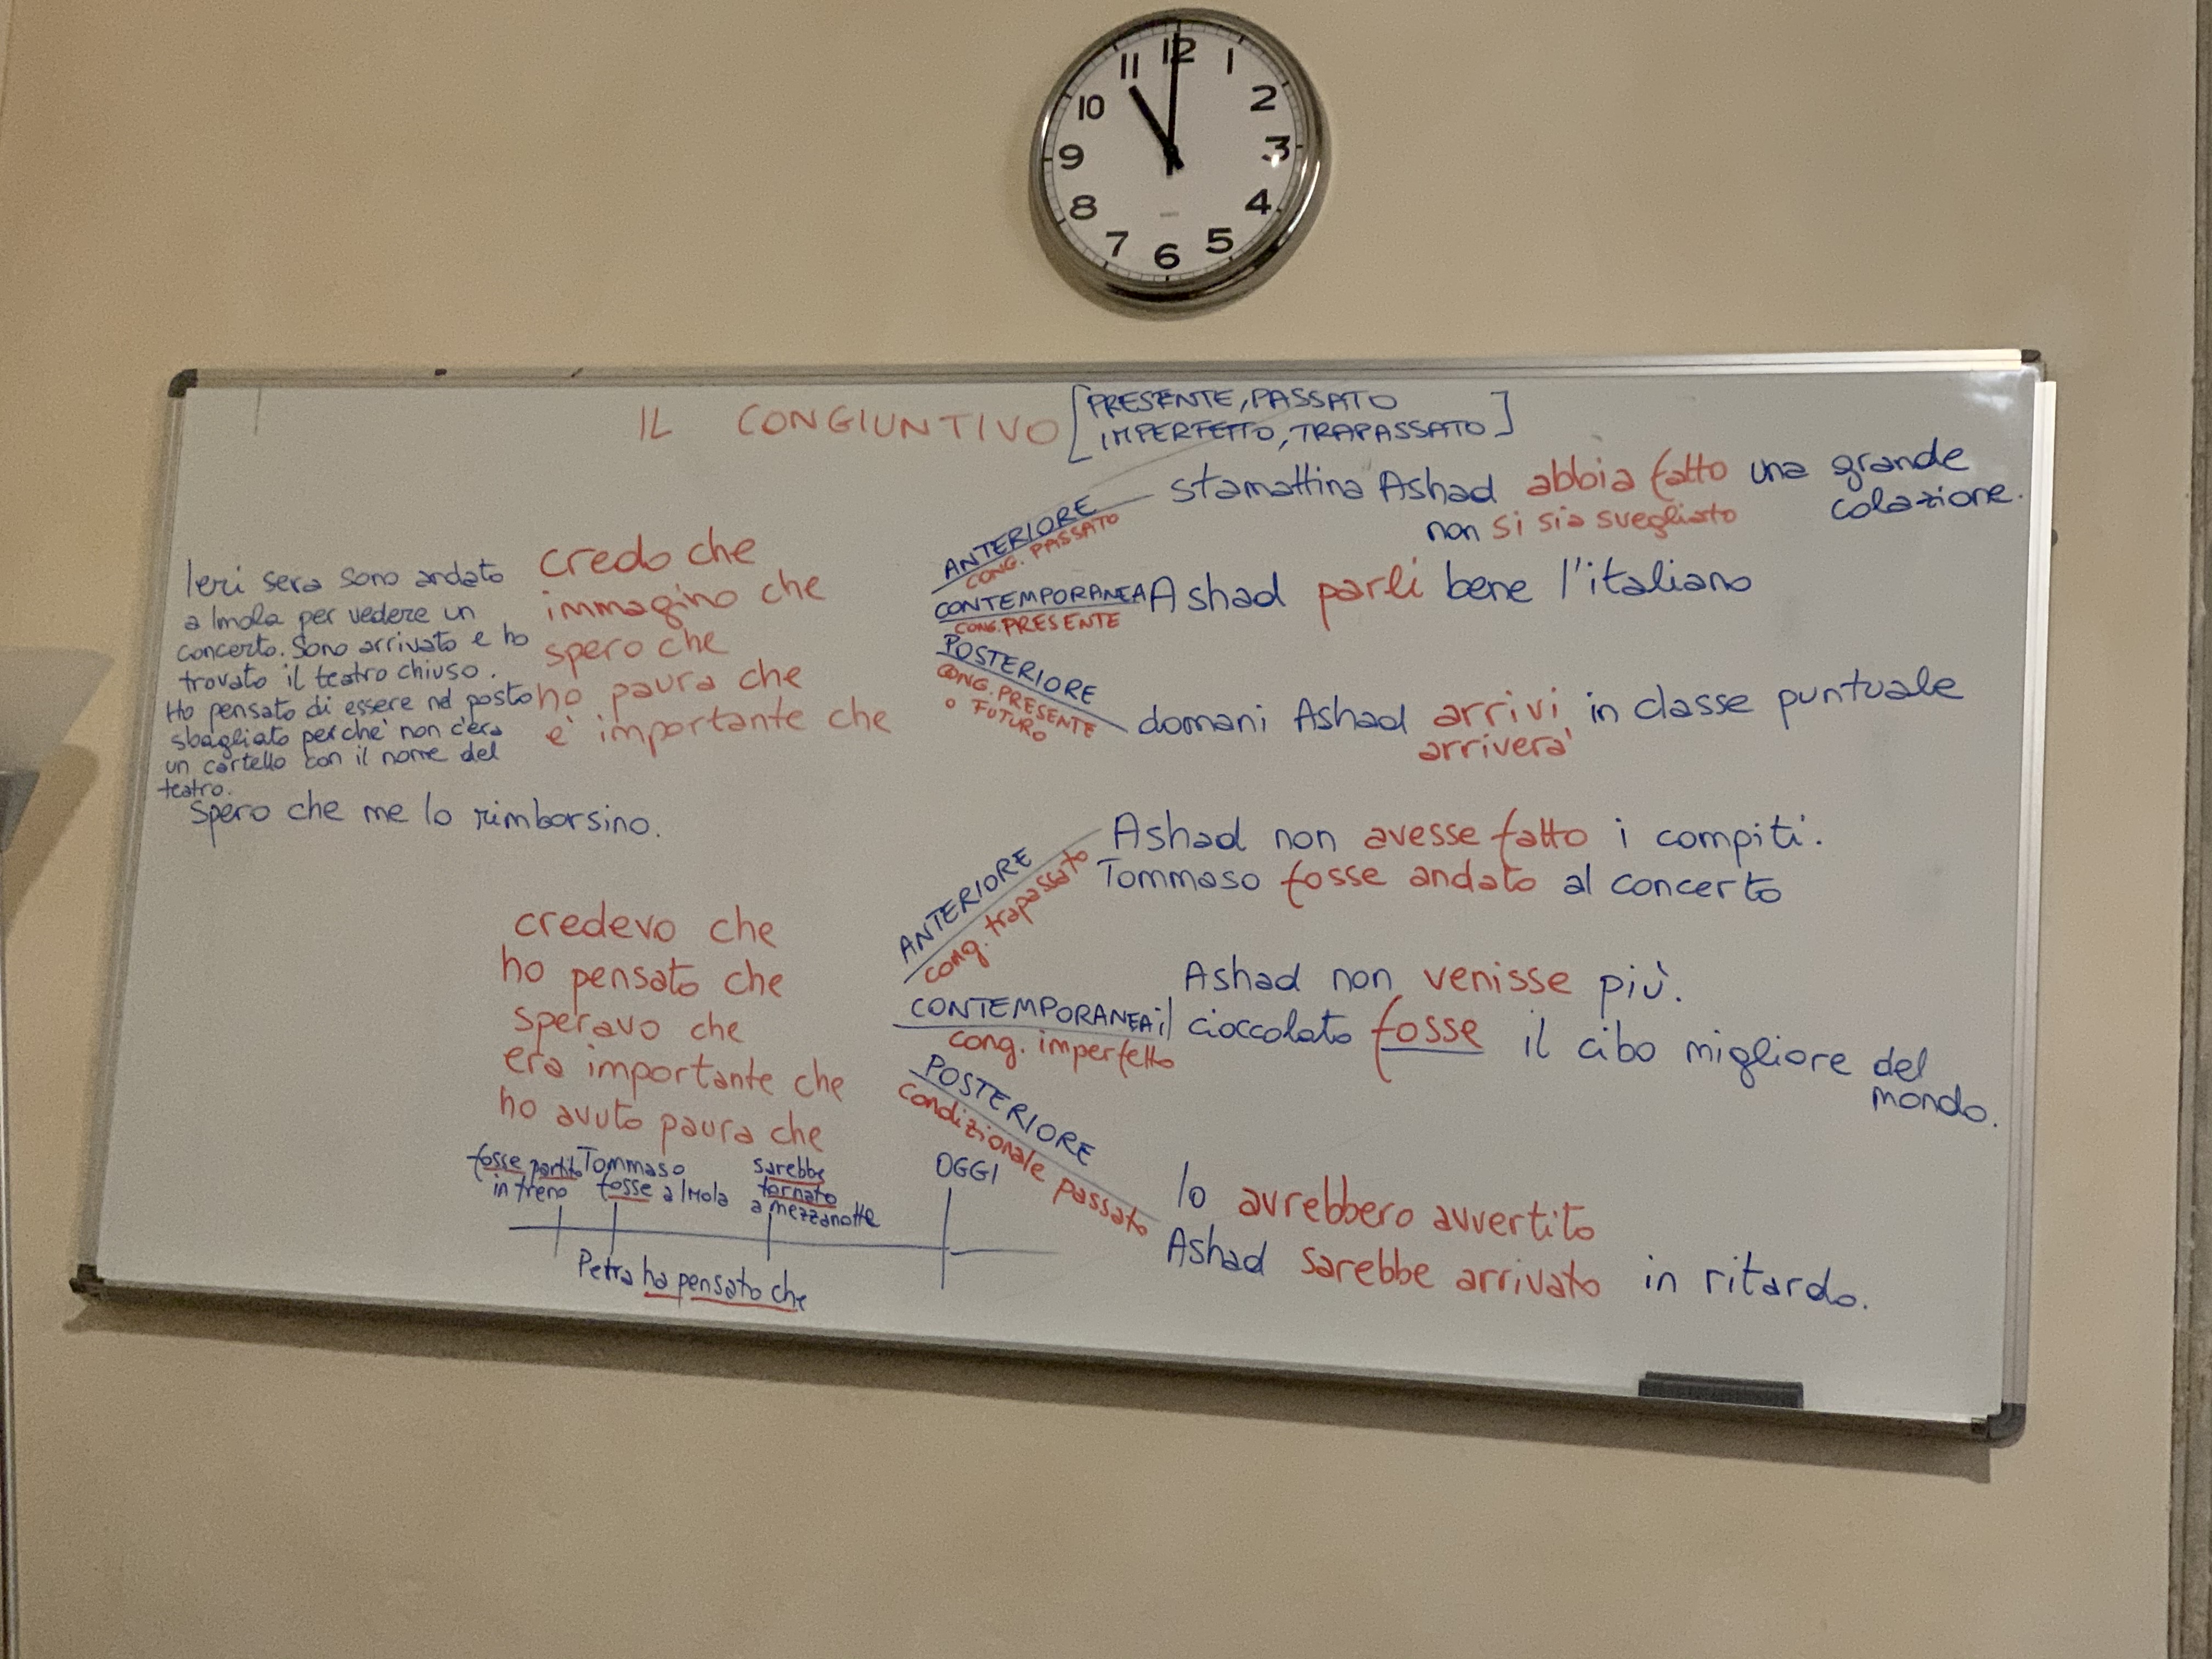 11 12 1
10 2
9 3
8 4
7 6 5
IL CONGIUNTIVO [PRESENTE, PASSATO
IMPERFETTO, TRAPASSATO]
Ieri sera sono andato
a Imola per vedere un
concerto. Sono arrivato e ho
trovato il teatro chiuso.
Ho pensato di essere nel posto
sbagliato perchè non c'era
un cartello con il nome del
teatro.
Spero che me lo rimborsino.
credo che
immagino che
spero che
ho paura che
e' importante che
ANTERIORE
CONG. PASSATO
stamattina Ashad abbia fatto una grande
colazione.
non si sia svegliato
CONTEMPORANEA
CONG. PRESENTE
Ashad parli bene l'italiano
POSTERIORE
CONG. PRESENTE
o FUTURO
domani Ashad arrivi in classe puntuale
arriverà
credevo che
ho pensato che
speravo che
era importante che
ho avuto paura che
ANTERIORE
cong. trapassato
Ashad non avesse fatto i compiti.
Tommaso fosse andato al concerto
CONTEMPORANEA
cong. imperfetto
Ashad non venisse più.
il cioccolato fosse il cibo migliore del
mondo.
POSTERIORE
condizionale passato
lo avrebbero avvertito
Ashad sarebbe arrivato in ritardo.
fosse partito
in treno
Tommaso
fosse a Imola
sarebbe
tornato
a mezzanotte
OGGI
Petra ha pensato che